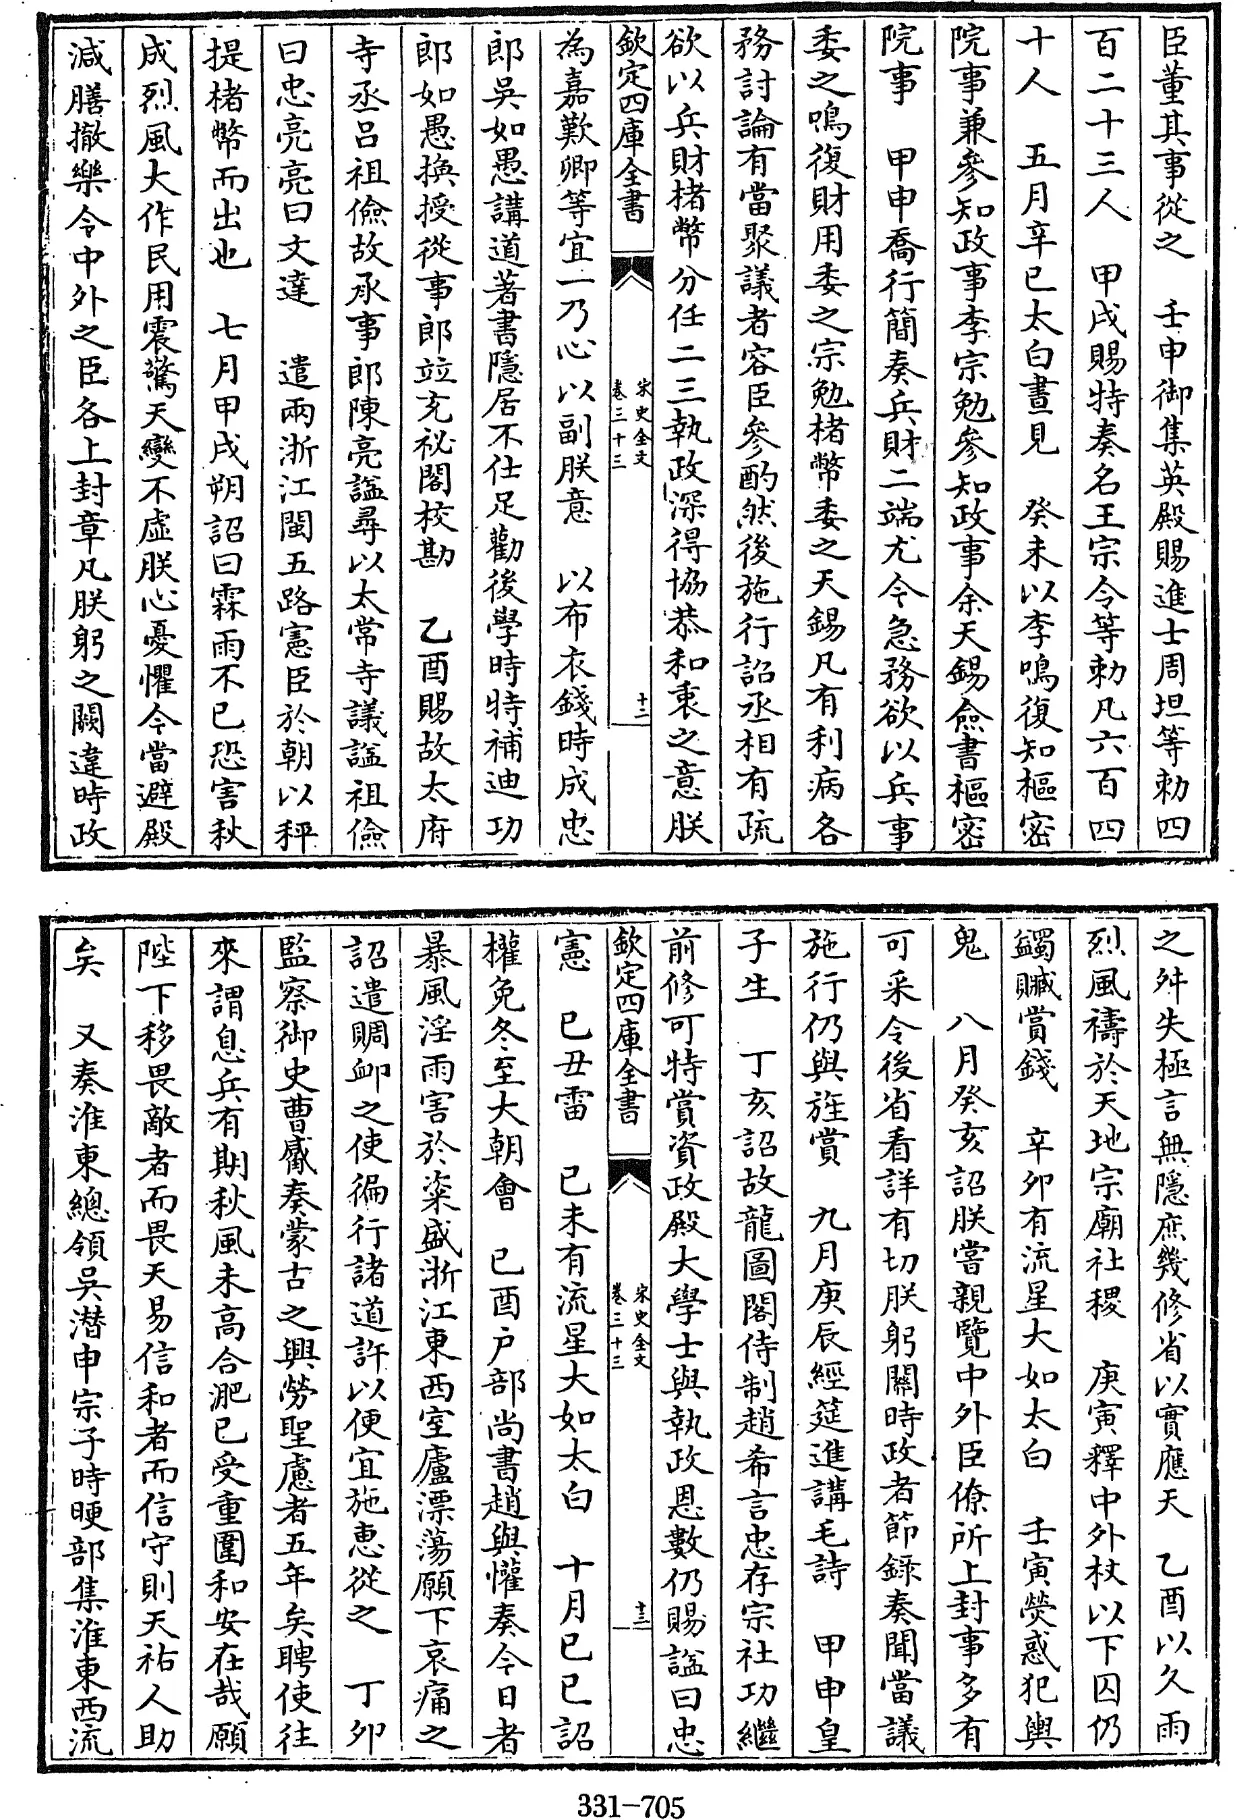 臣董其事從之　壬申御集英殿賜進士周坦等勅四
百二十三人　甲戌賜特奏名王宗令等勅凡六百四
十人　五月辛巳太白晝見　癸未以李鳴復知樞密
院事兼參知政事李宗勉參知政事余天錫僉書樞密
院事　甲申喬行簡奏兵財二端尤今急務欲以兵事
委之鳴復財用委之宗勉楮幣委之天錫凡有利病各
務討論有當聚議者容臣參酌然後施行詔丞相有疏
欲以兵財楮幣分任二三執政深得協恭和衷之意朕
欽定四庫全書
宋史全文
卷三十三
十二
為嘉歎卿等宜一乃心以副朕意　以布衣錢時成忠
郎吳如愚講道著書隱居不仕足勸後學時特補迪功
郎如愚換授從事郎竝充祕閣校勘　乙酉賜故太府
寺丞呂祖儉故承事郎陳亮諡尋以太常寺議諡祖儉
曰忠亮亮曰文達　遣兩浙江閩五路憲臣於朝以秤
提楮幣而出也　七月甲戌朔詔曰霖雨不已恐害秋
成烈風大作民用震驚天變不虛朕心憂懼今當避殿
減膳撤樂令中外之臣各上封章凡朕躬之闕違時政
之舛失極言無隱庶幾修省以實應天　乙酉以久雨
烈風禱於天地宗廟社稷　庚寅釋中外杖以下囚仍
蠲贓賞錢　辛卯有流星大如太白　壬寅熒惑犯輿
鬼　八月癸亥詔朕嘗親覽中外臣僚所上封事多有
可采令後省看詳有切朕躬關時政者節錄奏聞當議
施行仍與旌賞　九月庚辰經筵進講毛詩　甲申皇
子生　丁亥詔故龍圖閣侍制趙希言忠存宗社功繼
前修可特賞資政殿大學士與執政恩數仍賜諡曰忠
欽定四庫全書
宋史全文
卷三十三
十三
憲　己丑雷　己未有流星大如太白　十月己巳詔
權免冬至大朝會　己酉户部尚書趙與懽奏今日者
暴風淫雨害於粢盛浙江東西室廬漂蕩願下哀痛之
詔遣賙卹之使徧行諸道許以便宜施惠從之　丁卯
監察御史曹觱奏蒙古之興勞聖慮者五年矣聘使往
來謂息兵有期秋風未高合淝已受重圍和安在哉願
陛下移畏敵者而畏天易信和者而信守則天祐人助
矣　又奏淮東總領吳潛申宗子時㬹部集淮東西流
331-705